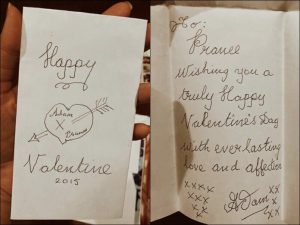 Happy
Adam
X
Valentine
2015
To:
wishing you a
truly Happy
Valentine's Day
with everlasting
love and affection
xxxx
xxx
xx
x
Adam
xx
xx
x